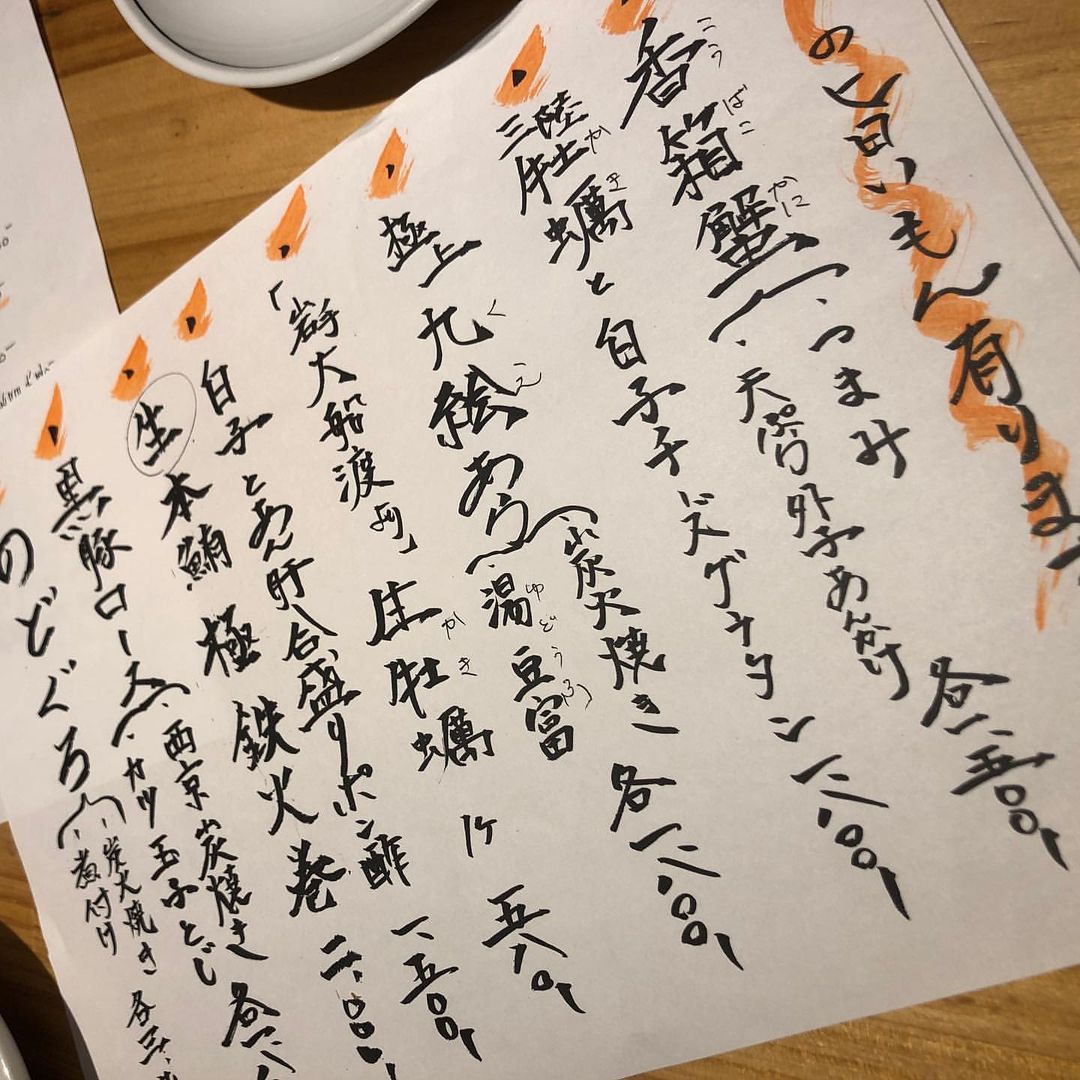 の旨いもん有りま
香箱蟹 こうばこかに
つまみ
天ぷら外子あんかけ
各一、五〇〇-
三陸牡蠣と白子チーズグラタン 一、八〇〇-
かき
極上九絵あら くえ
炭火焼き
湯豆富 ゆどうふ
各一、八〇〇-
「岩手大船渡より」生牡蠣 かき 1ケ 五八〇-
白子とあん肝合盛りポン酢 一、五〇〇-
生本鮪 極 鉄火巻 二、〇〇〇-
黒豚ロース
西京炭焼き
カツ玉子とじ
各一、八
のどぐろ
炭火焼き
煮付け
各三、